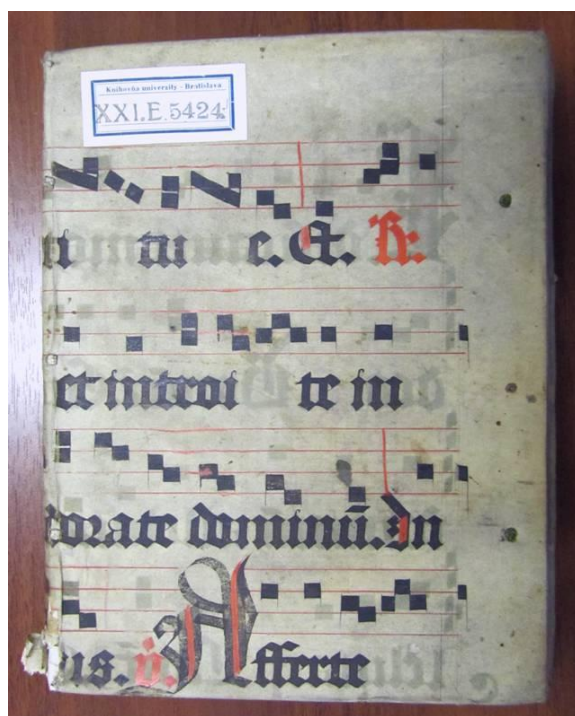 Knihovňa university - Bratislava
XXI.E.5424
tu e. Et. R.
et introi te in
orate dominū. In
us. v. Afferte